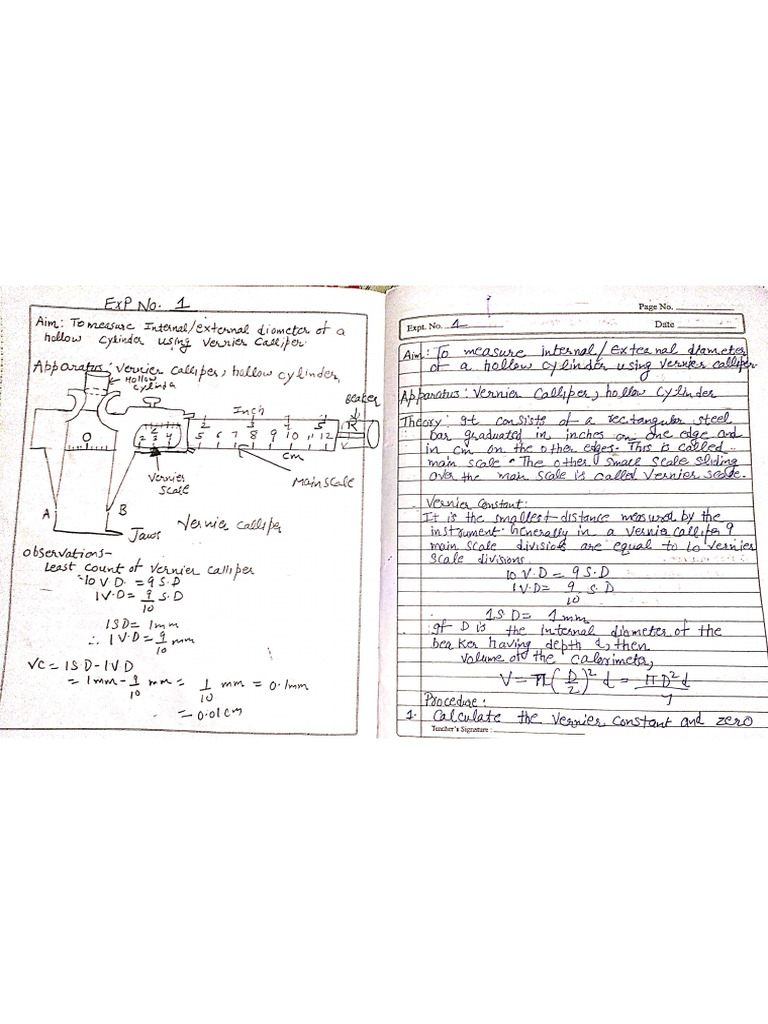 Exp No. 1
Aim: To measure Internal/external diometer of a
hollow Cylinder using Vernier Calliper.
Apparatus: Vernier Calliper, hollow cylinder,
Hollow
cylinder
Beaker
Inch
2 3 4 5
0
2 3 4 5 6 7 8 9 10 11 12
R
cm
Vernier
scale
Main scale
A B
Jaws
Vernier calliper
Observations-
Least Count of Vernier calliper
10 V.D. = 9 S.D
1 V.D = 9/10 S.D
1 S D = 1 mm
∴ 1 V.D = 9/10 mm
VC = 1 S D - 1 V D
= 1 mm - 9/10 mm = 1/10 mm = 0.1mm
= 0.01cm
Page No.
Expt. No. 1 Date
Aim: To measure internal/external diameter
of a hollow cylinder using vernier calliper
Apparatus: Vernier Calliper, hollow Cylinder
Theory: It consists of a rectangular steel
bar graduated in inches on one edge and
in cm on the other edges. This is called
main scale. The other small scale sliding
over the main scale is called Vernier scale.
Vernier Constant:
It is the smallest distance measured by the
instrument. Generally in a Vernier calliper 9
main scale divisions are equal to 10 vernier
scale divisions.
10 V.D = 9 S.D
1 V.D = 9/10 S.D
1 S D = 1 mm
If D is the internal diameter of the
beaker having depth d, then
Volume of the calorimeter,
V = π(D/2)² d = πD²d/4
Procedure:
1. Calculate the Vernier Constant and zero
Teacher's Signature: